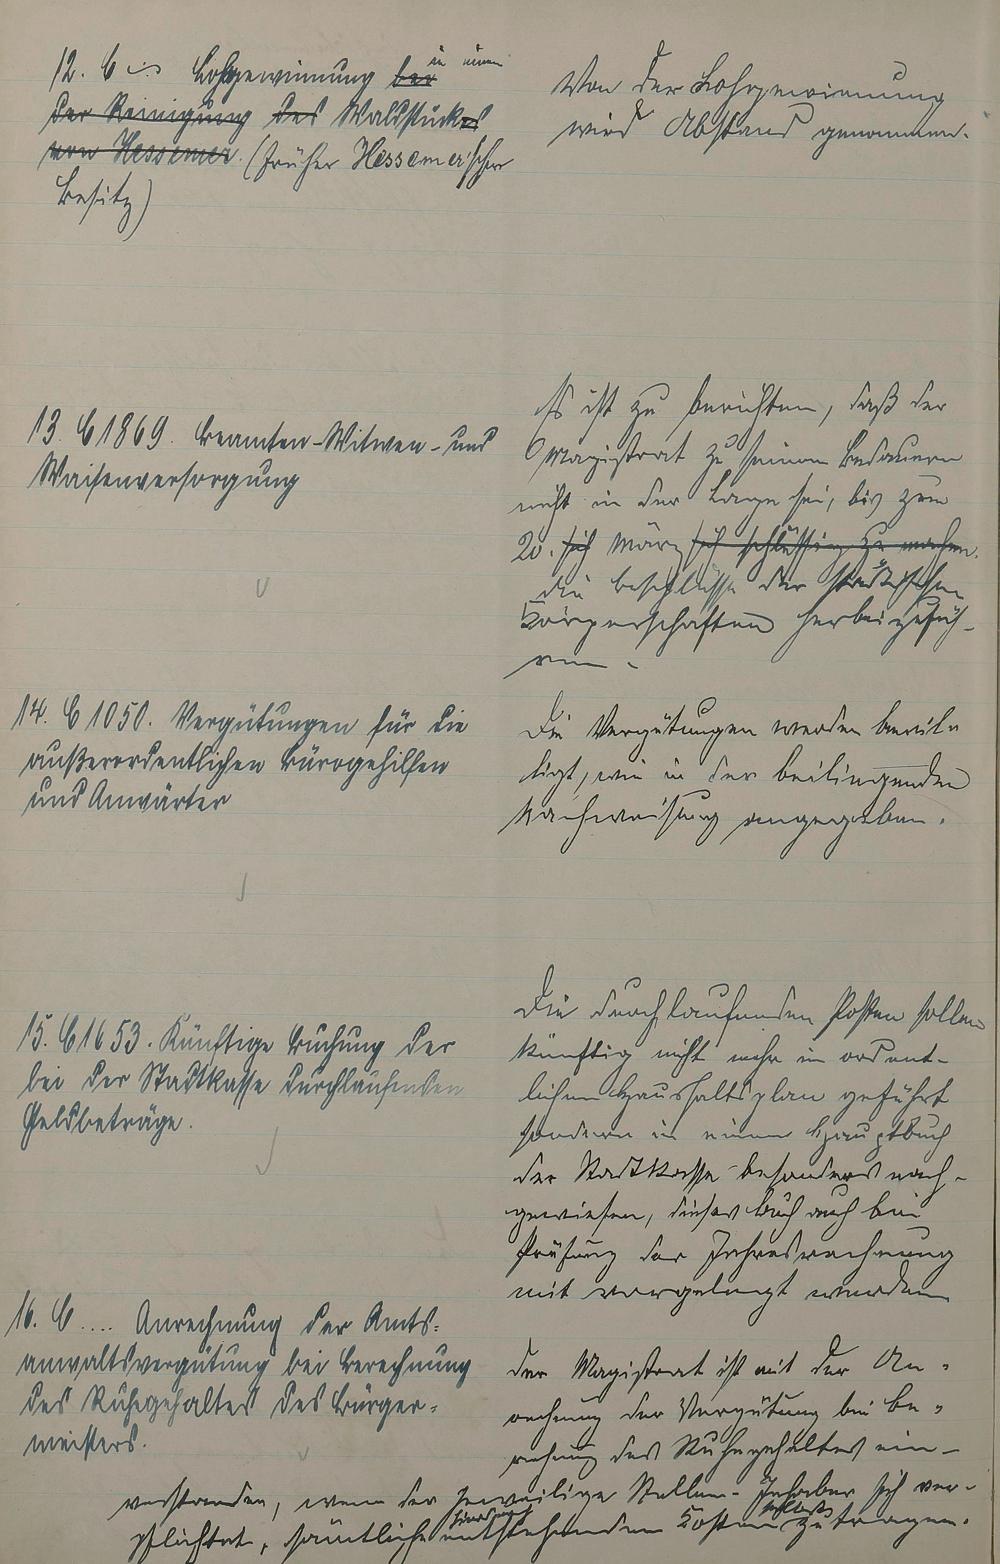 12. C ... Lohgewinnung bei in einem
der Reinigung des Waldstückes
von Hessemer. (früher Hessemer'scher
Besitz)
Von der Lohgewinnung
wird Abstand genommen.
13. C 1869. Beamten-Witwen- und
Waisenversorgung
Es ist zu berichten, daß der
Magistrat zu seinem Bedauern
nicht in der Lage sei, bis zum
20. sich März sich schlüssig zu machen.
die Beschlüsse der städtischen
Körperschaften herbeizufüh-
ren.
14. C 1050. Vergütungen für die
außerordentlichen Bürogehilfen
und Anwärter
Die Vergütungen werden bewil-
ligt, wie in der beiliegenden
Nachweisung angegeben.
15. C 1653. Künftige Buchung der
bei der Stadtkasse durchlaufenden
Geldbeträge.
Die durchlaufenden Posten sollen
künftig nicht mehr im ordent-
lichen Haushaltsplan geführt
sondern in einem Hauptbuch
der Stadtkasse besonders nach-
gewiesen, dieses Buch auch bei
Prüfung der Jahresrechnung
mit vorgelegt werden
16. C .... Anrechnung der Amts-
anwaltsvergütung bei Berechnung
des Ruhegehaltes des Bürger-
meisters.
Der Magistrat ist mit der An-
rechnung der Vergütung bei Be-
rechnung des Ruhegehaltes ein-
verstanden, wenn der jeweilige Stellen-Inhaber sich ver-
pflichtet, sämtliche hierdurch entstehenden Kosten selbst zu tragen.